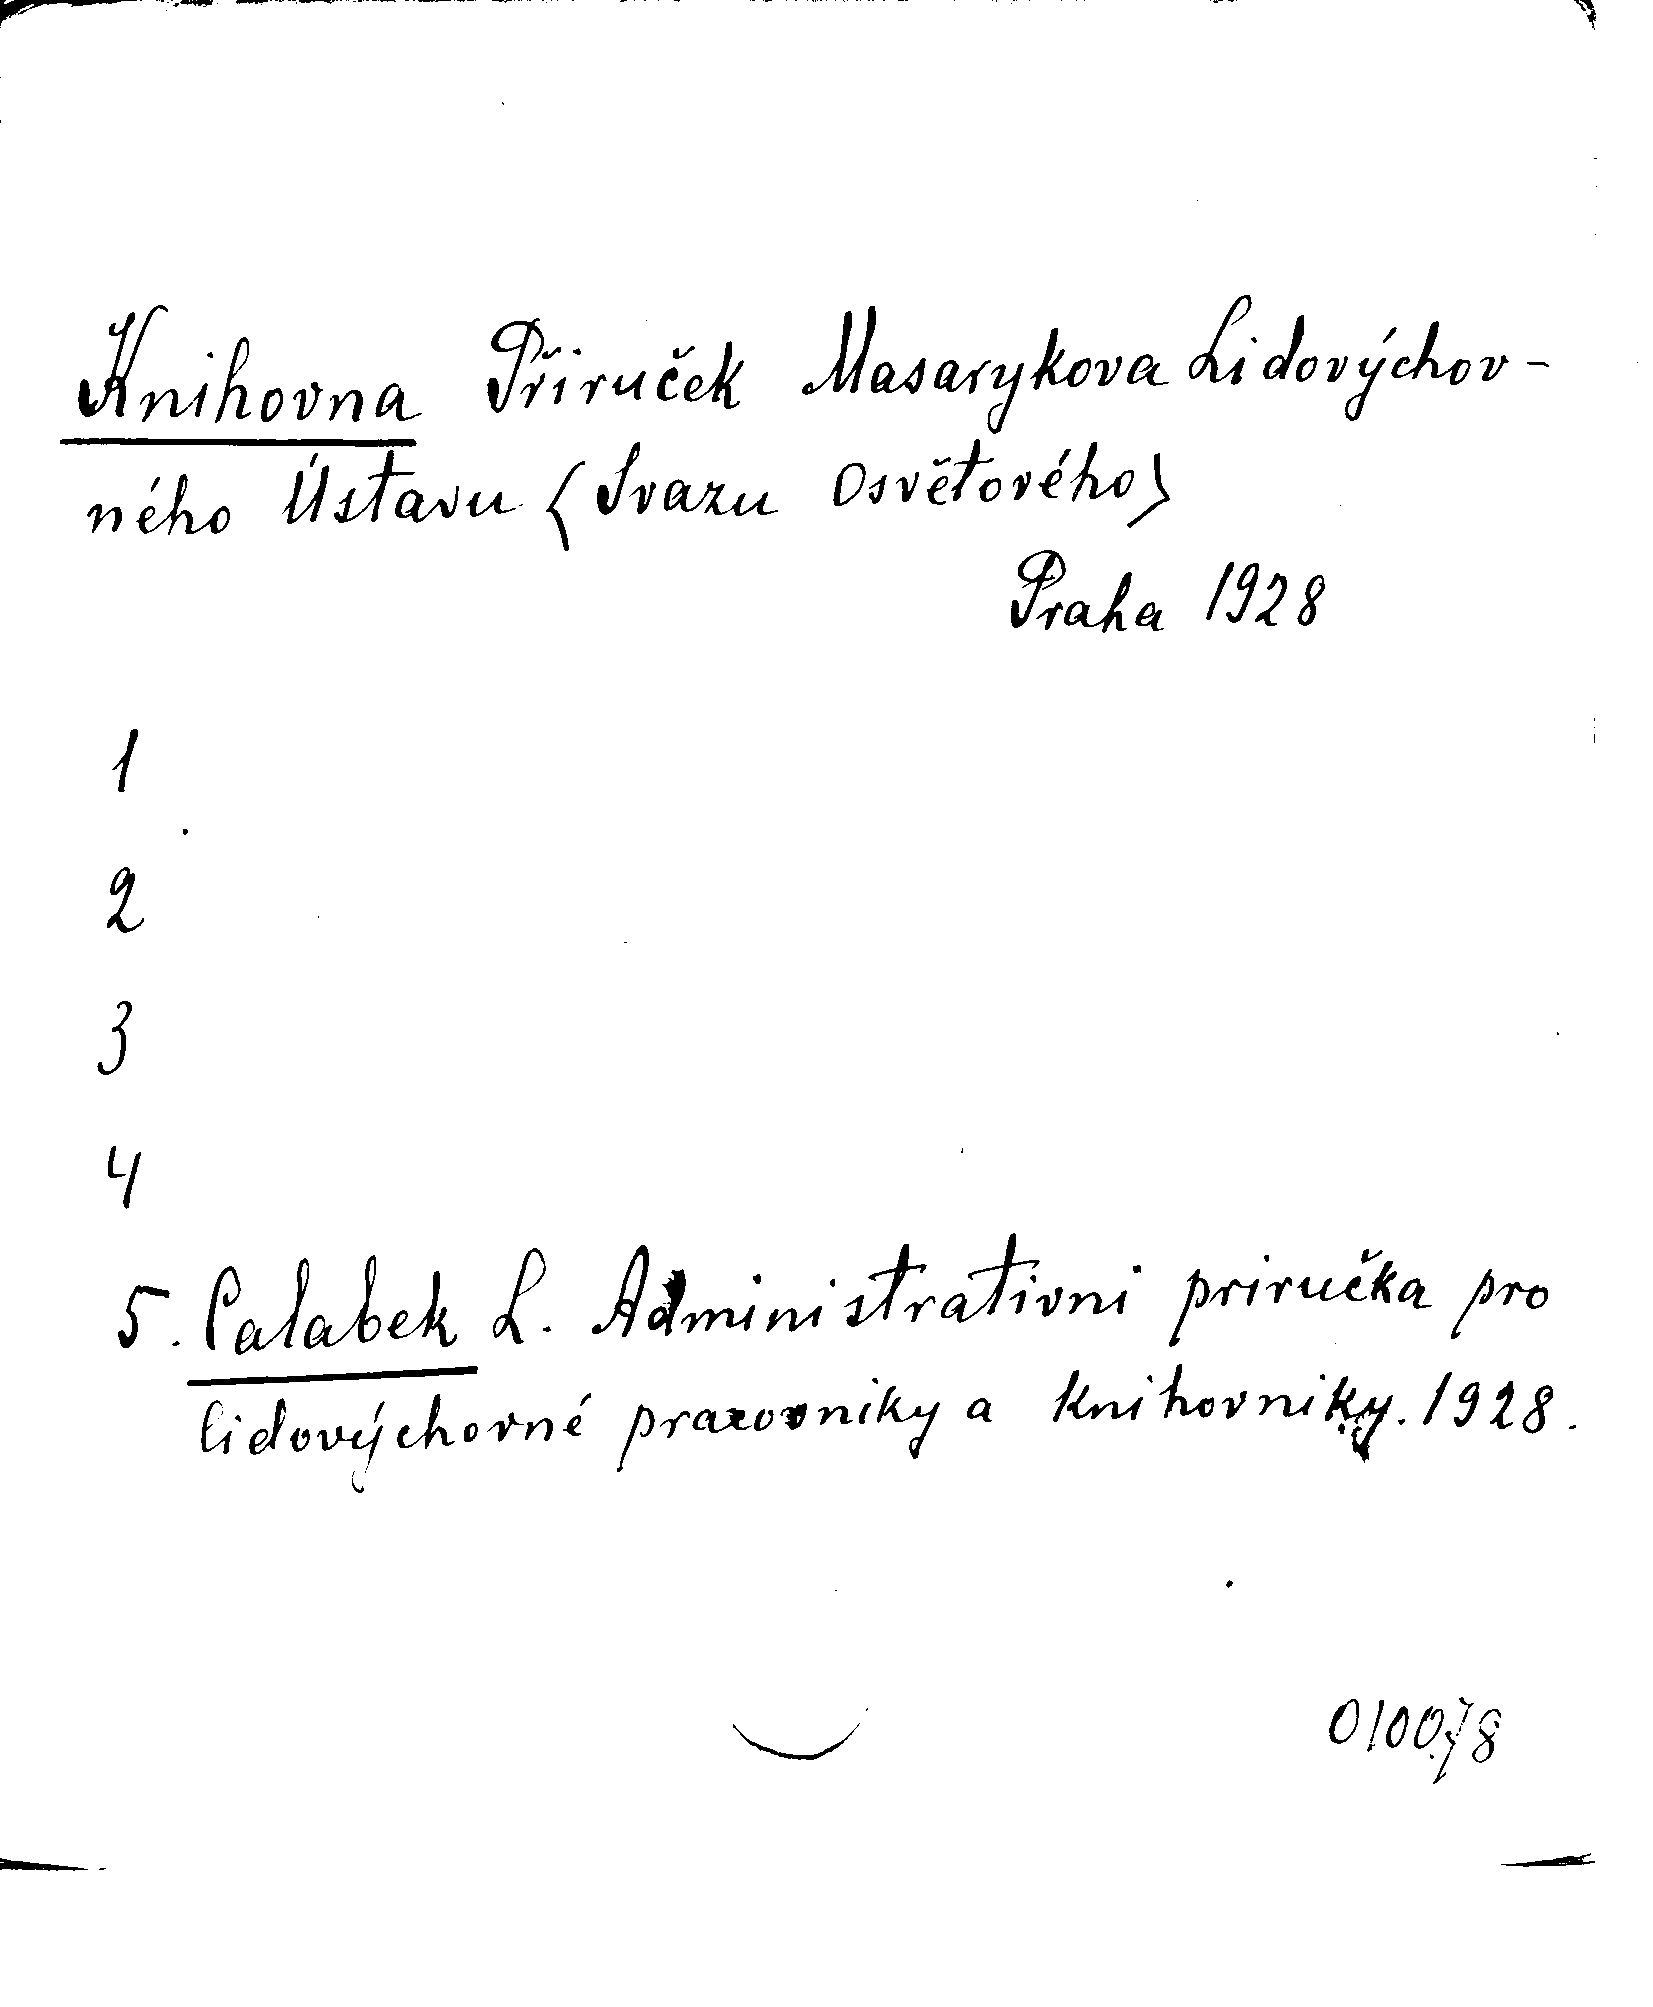 Knihovna Přiruček Masarykova Lidovýchov-
ného Ústavu (Svazu Osvětového)
Praha 1928
1
2
3
4
5. Calabek L. Administrativni priručka pro
lidovýchovné pracovniky a knihovniky. 1928.
010078